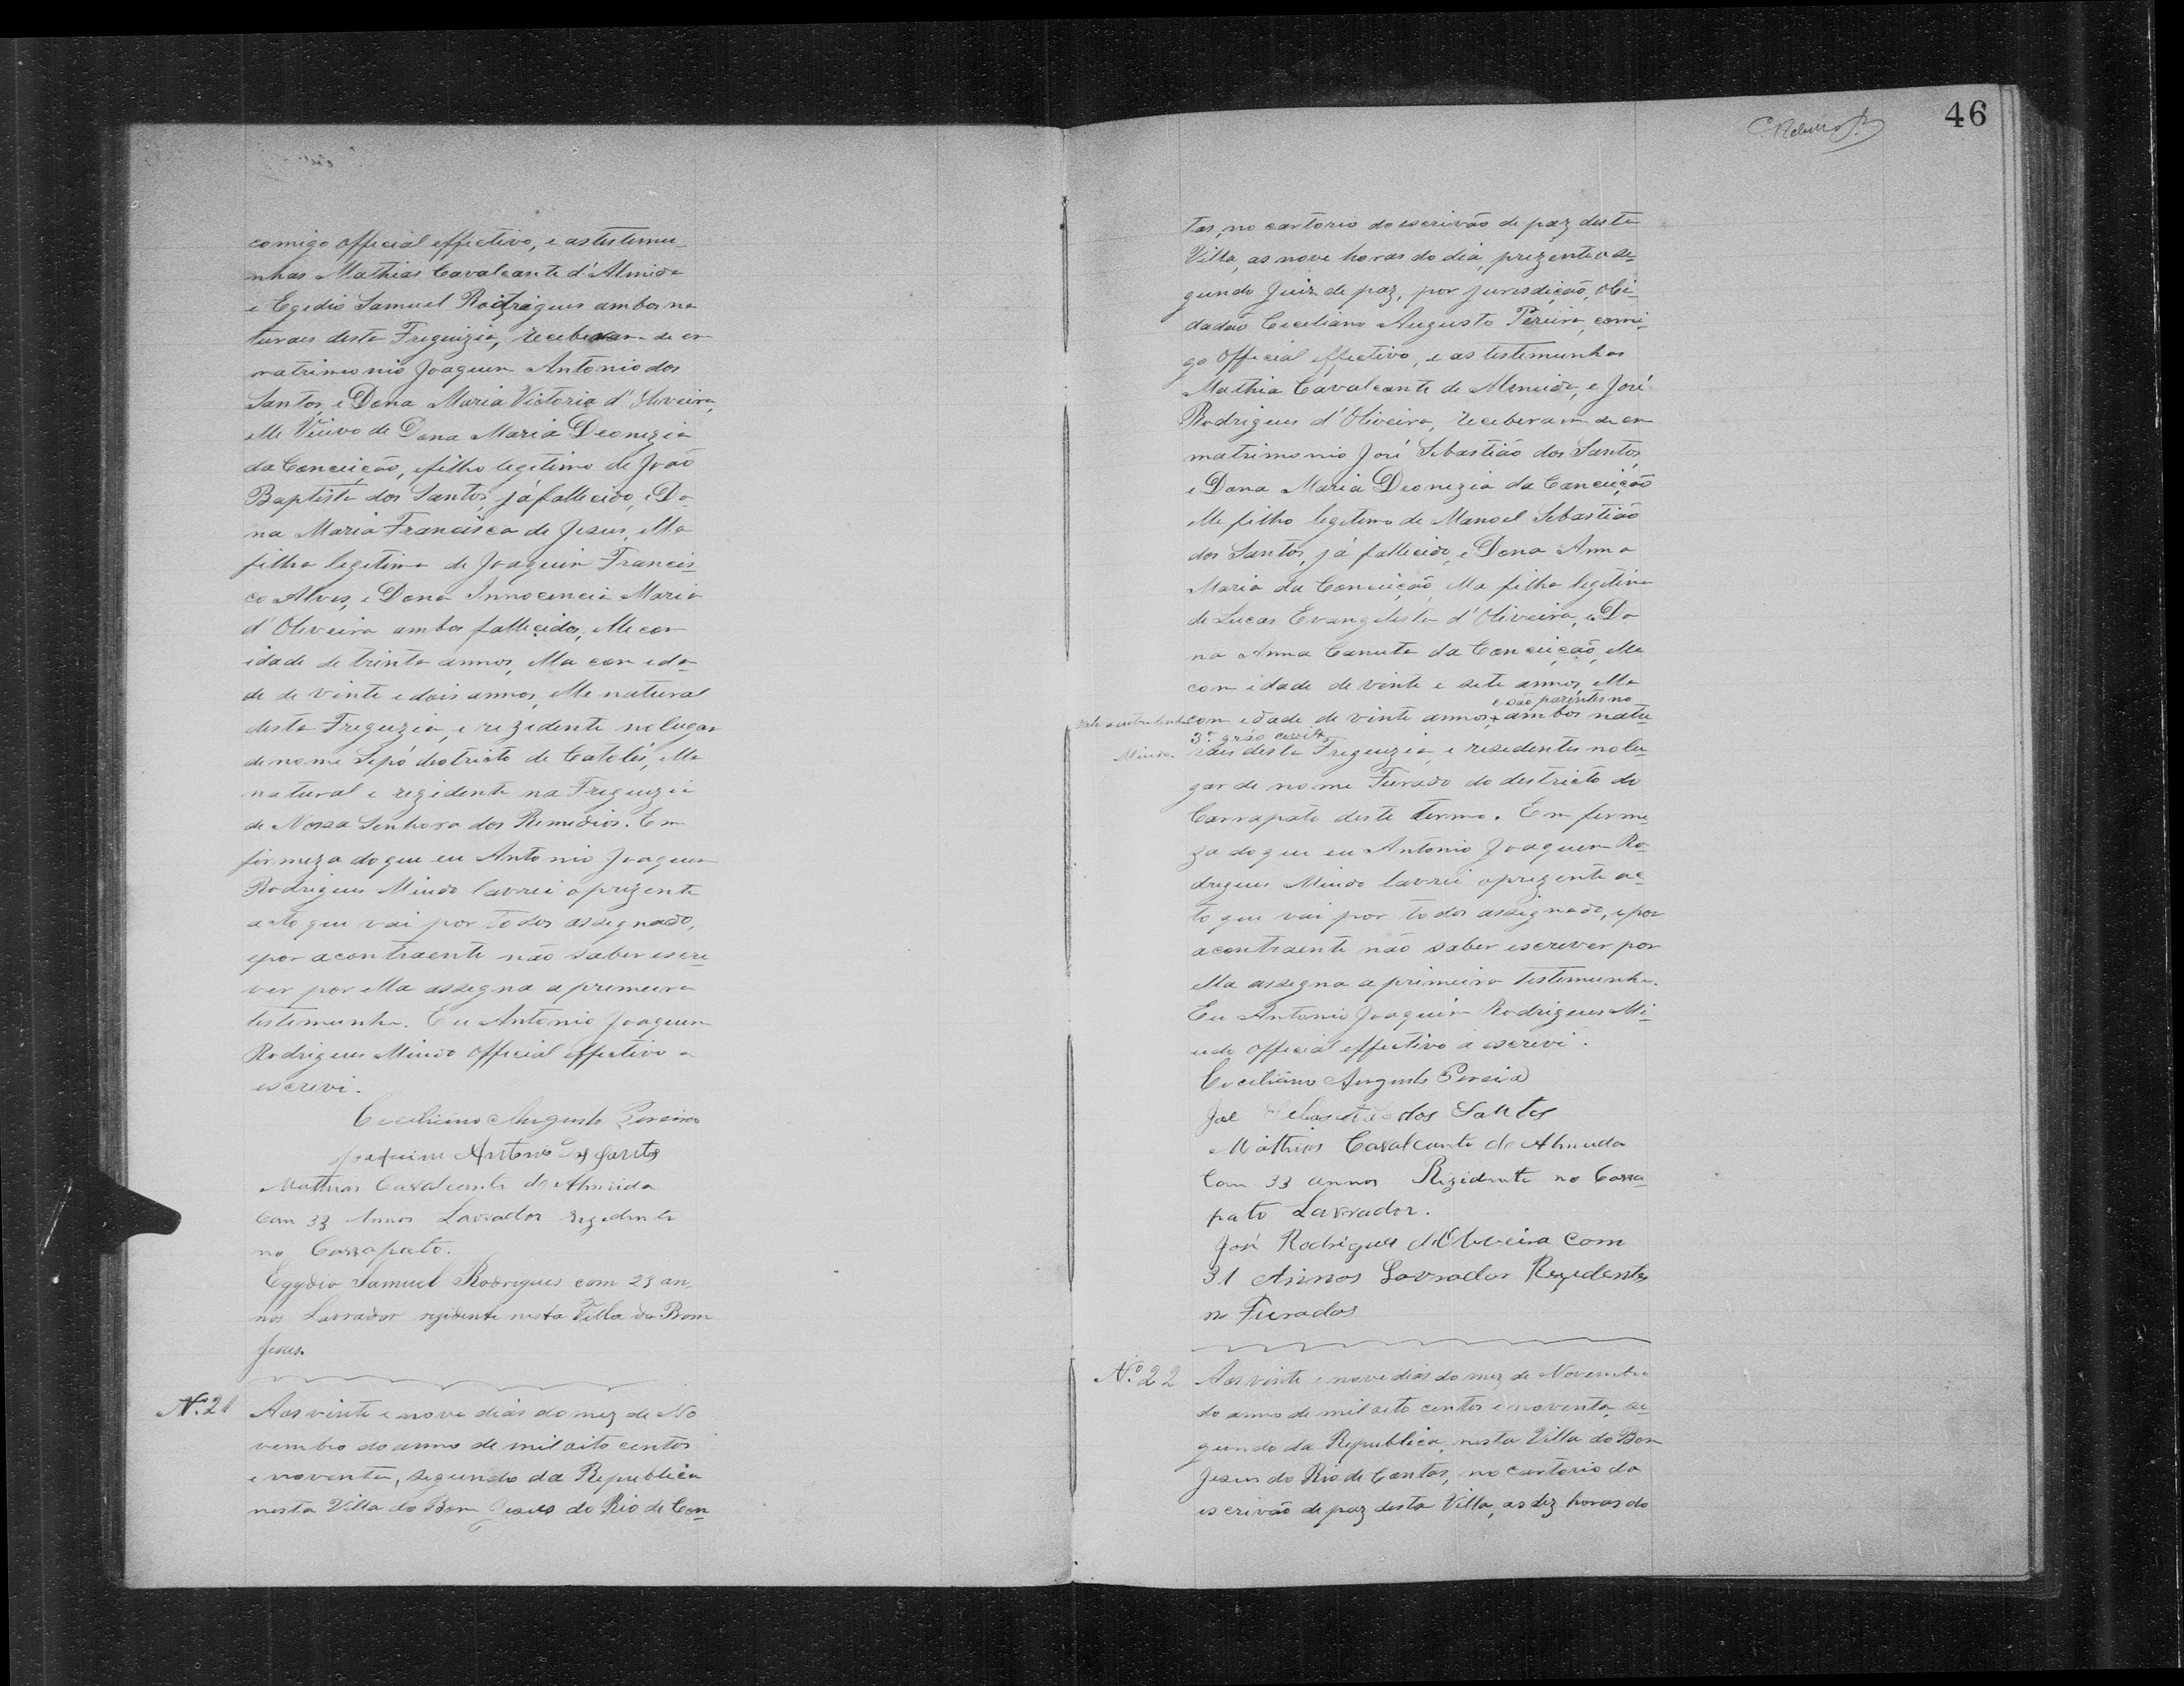 comigo official effectivo, e as testemu-
nhas Mathias Cavalcante d'Almida
e Egedio Samuel Rodrigues ambos na
turaes desta Freguizia, receberam-se em
matrimonio Joaquim Antonio dos
Santos, e Dona Maria Victoria d'Oliveira,
elle Viuvo de Dona Maria Deonezia
da Conceição, e filho legitimo de João
Baptista dos Santos, já fallecido, e Do-
na Maria Francisca de Jesus, ella
filha legitima de Joaquim Francis-
co Alves, e Dona Innocencia Maria
d'Oliveira ambos fallecidos, elle com
idade de trinta annos, ella com ida-
de de vinte e dois annos, elle natural
desta Freguezia, e rezidente no lugar
de nome Sipó destricto de Catolés, ella
natural e rezidente na Freguezia
de Nossa Senhora dos Remedios. Em
firmeza do que eu Antonio Joaquim
Rodrigues Miudo lavrei o prezente
acto que vai por todos assegnado,
e por a contraente não saber escre-
ver por ella assegna a primeira
testemunha. Eu Antonio Joaquim
Rodrigues Miudo official effectivo a
escrevi.
Ceciliano Augusto Pereira
Joaquim Antonio dos Santos
Mathias Cavalcante de Almeida
Com 33 Annos Lavrador rezidente
no Carrapato.
Egydio Samuel Rodrigues com 23 an-
nos Lavrador rezidente nesta Villa do Bom
Jesus.
Nº 21 Aos vinte e nove dias do mez de No
vembro do anno de mil oito centos
e noventa, segundo da Republica
nesta Villa do Bom Jesus do Rio de Con-
46
tas, no cartorio do escrivão de paz desta
Villa, as nove horas do dia, prezente o se-
gundo Juiz de paz, por jurisdição, o Ci-
dadão Ceciliano Augusto Pereira, comi-
go Official effectivo, e as testemunhas
Mathia Cavalcante de Almeida, e José
Rodrigues d'Oliveira, receberam-se em
matrimonio José Sebastião dos Santos,
e Dona Maria Deonezia da Conceição
elle filho legitimo de Manoel Sebastião
dos Santos, já fallecido, e Dona Anna
Maria da Conceição, ella filha legitima
de Lucas Evangelista d'Oliveira, e Do
na Anna Canuta da Conceição, elle
com idade de vinte e sete annos, ella
e são parentes no
com edade de vinte annos + ambos natu-
3º gráo civil
Miudo. raes desta Freguezia, e residentes no lu-
gar de nome Furado do destricto do
Carrapato deste termo. Em firme-
za do que eu Antonio Joaquim Ro-
drigues Miudo lavrei o prezente ac-
to que vai por todos assignado, e por
a contraente não saber escrever por
ella assegna a primeira testemunha.
Eu Antonio Joaquim Rodrigues Mi-
udo official effectivo a escrevi.
Ceciliano Augusto Pereira
José Sebastião dos Santos
Mathias Cavalcante de Almeida
Com 33 annos Rezidente no Carra-
pato Lavrador.
José Rodrigues d'Oliveira Com
31 Annos Lavrador Rezidente
no Furados
Nº 22 Aos vinte e nove dias do mez de Novembro
do anno de mil oito centos e noventa, se-
gundo da Republica, nesta Villa do Bom
Jesus do Rio de Contas, no cartorio do
escrivão de paz desta Villa, as dez horas do